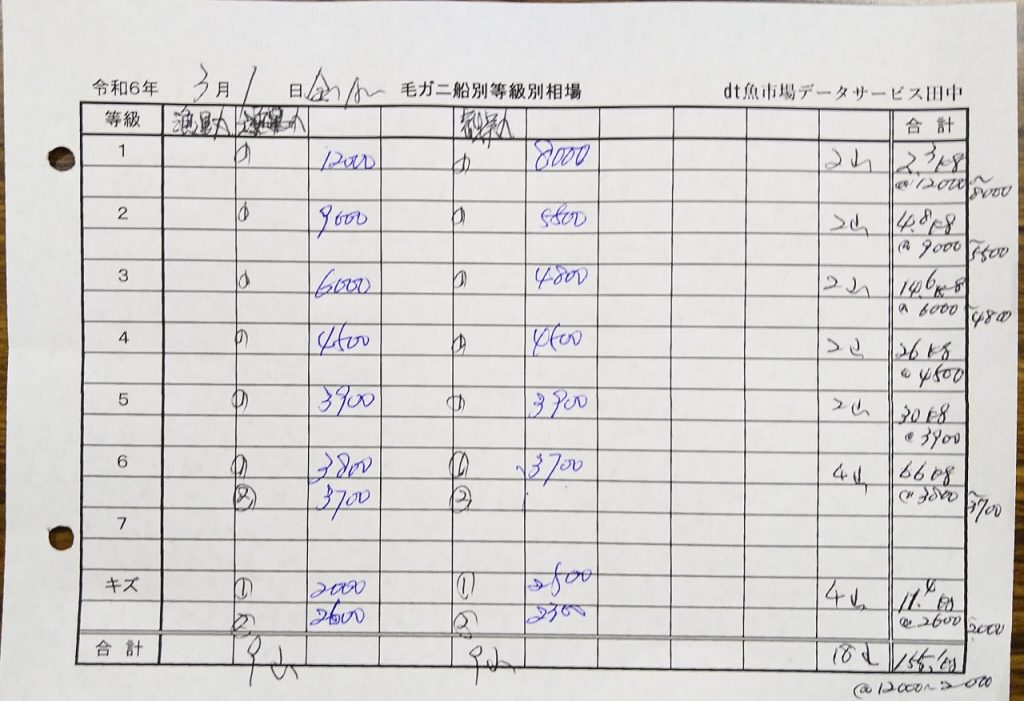 令和6年 3月 1日 毛ガニ船別等級別相場 dt魚市場データサービス田中
等級 合計
1 ① 12000 ① 8000 2山 2.3kg
@12000~8000
2 ① 9000 ① 5500 2山 4.8kg
@9000~5500
3 ① 6000 ① 4800 2山 14.6kg
@6000~4800
4 ① 4500 ① 4500 2山 26kg
@4500
5 ① 3900 ① 3900 2山 30kg
@3900
6 ① 3800 ① 3700 4山 66kg
② 3700 ② @3800~3700
7
キズ ① 2000 ① 2500 4山 11.4kg
② 2600 ② 2300 @2600~2000
合計 9山 9山 18山 155.1kg
@12000~2000